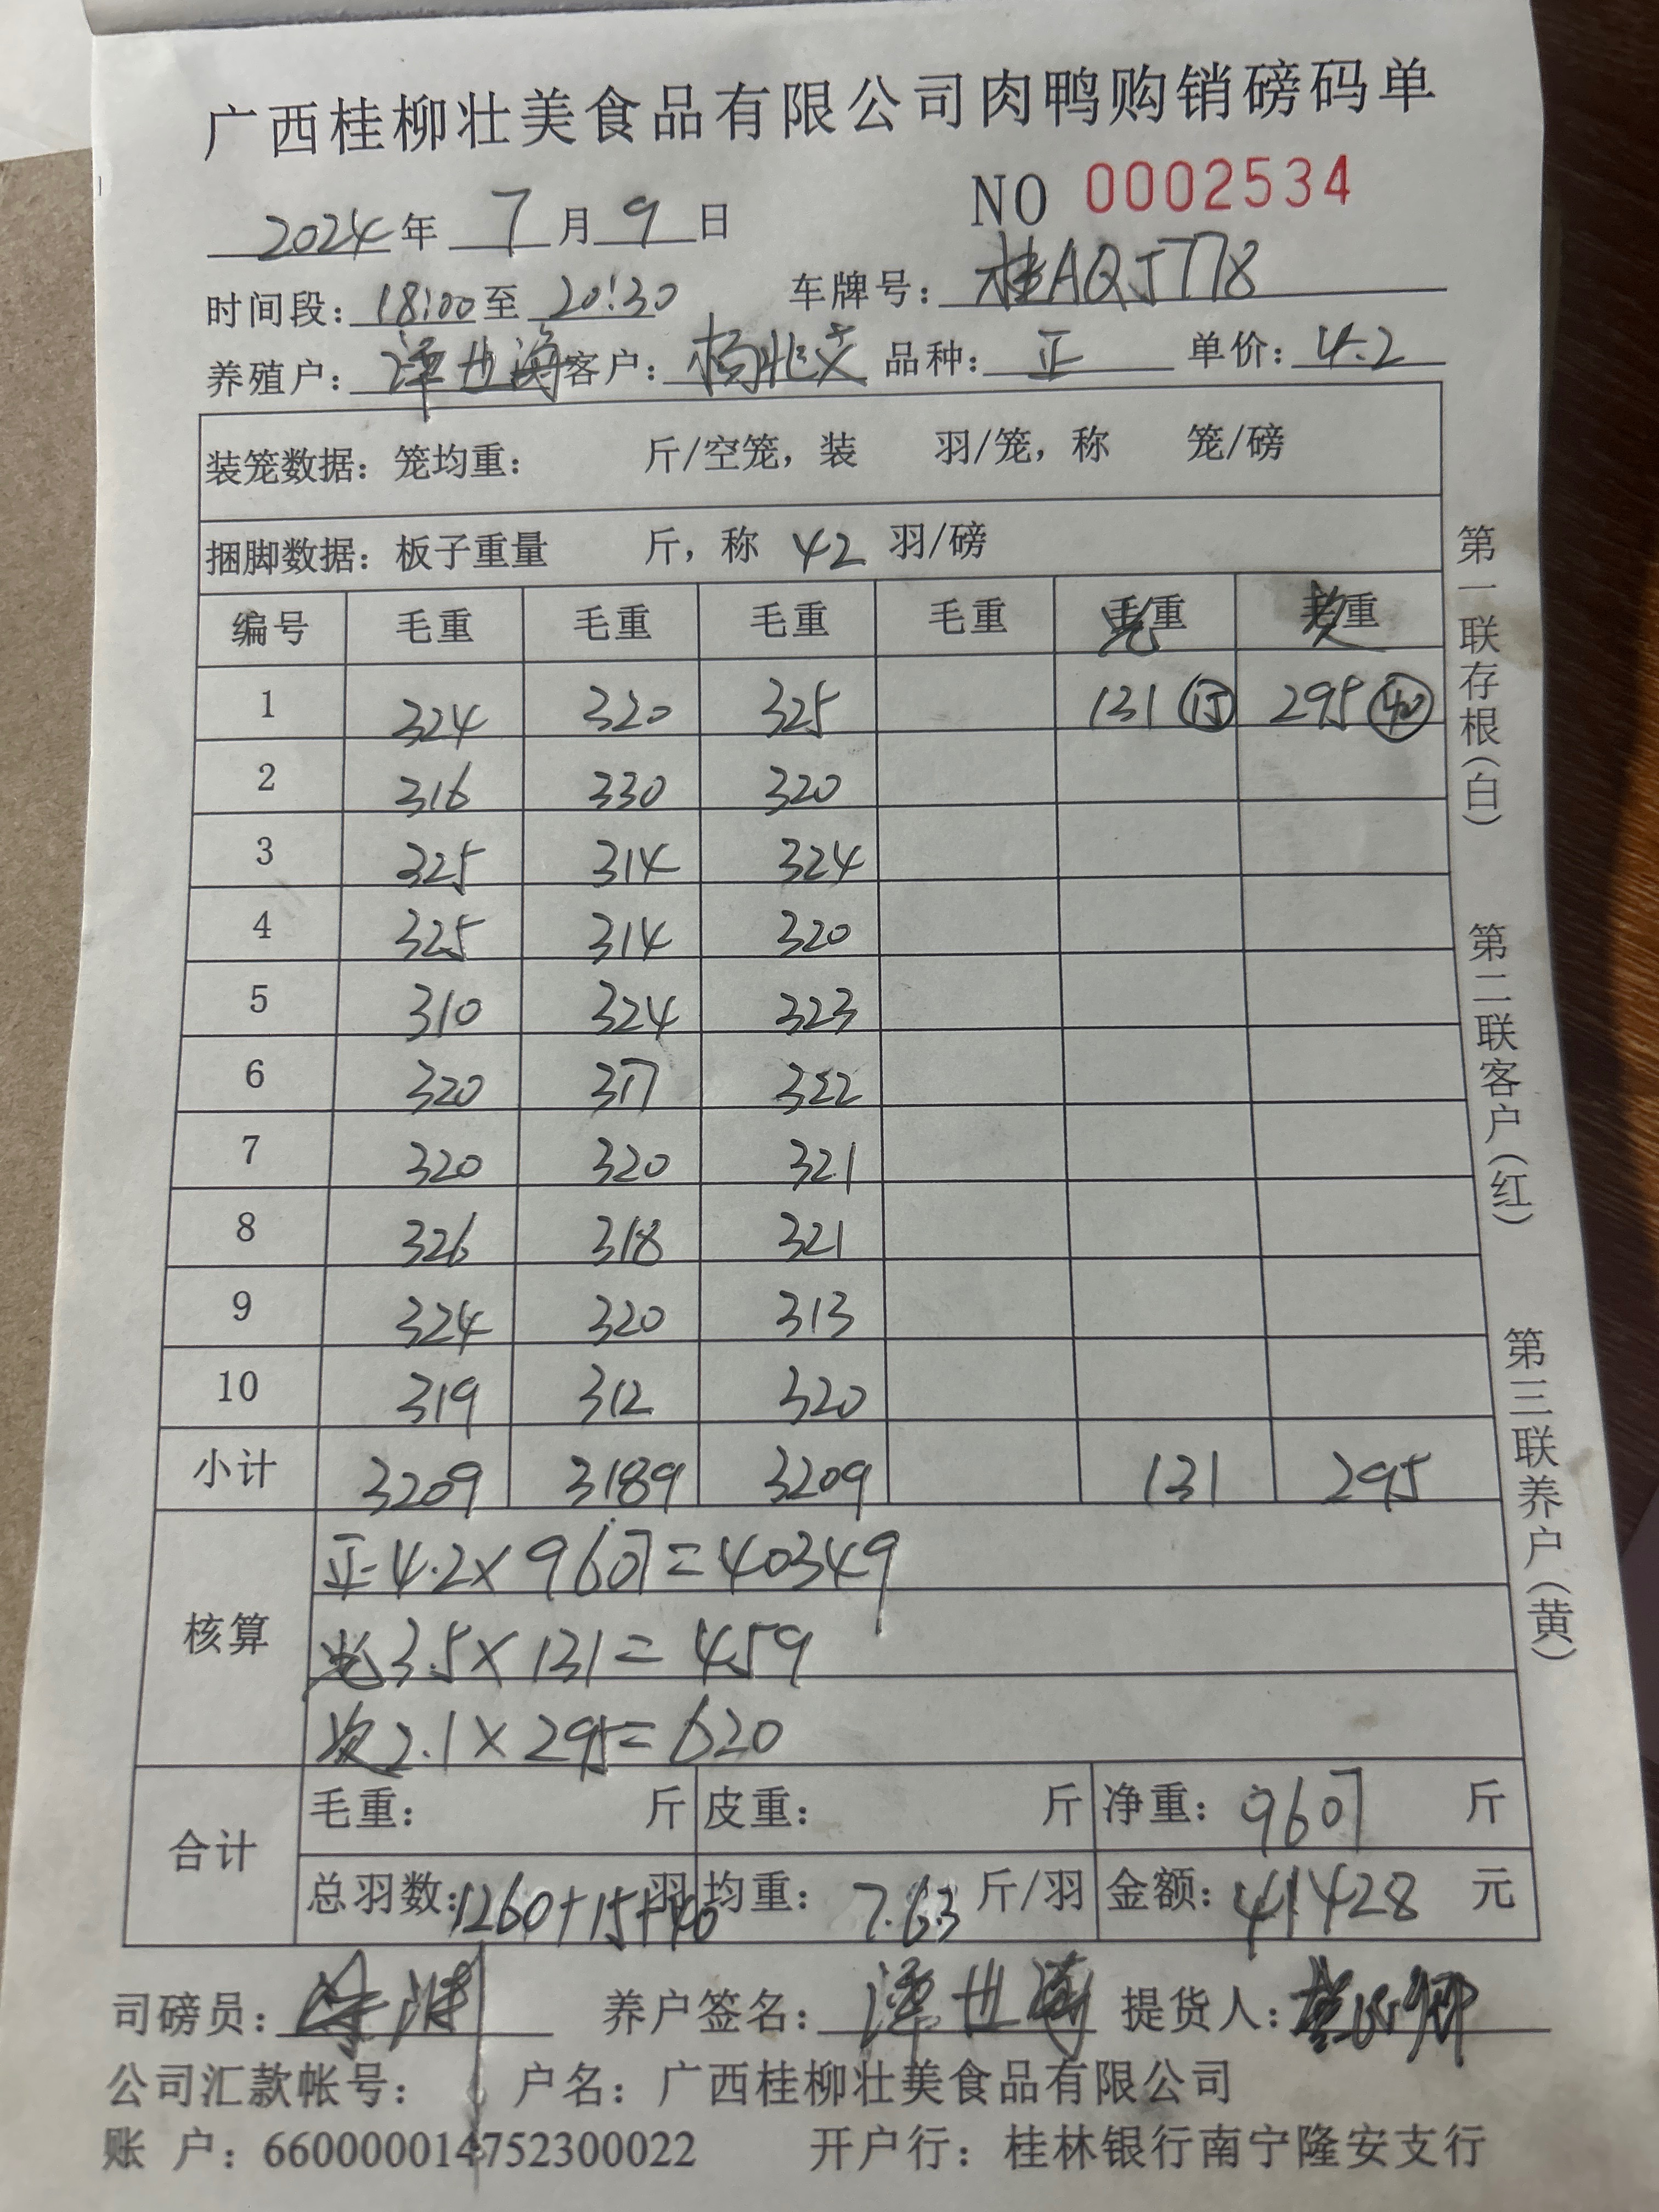 广西桂柳壮美食品有限公司肉鸭购销磅码单
NO 0002534
2024年 7月9日
时间段：18:00至20:30 车牌号：桂AQJ778
养殖户：谭世海 客户：杨兆文 品种：正 单价：4.2
装笼数据：笼均重： 斤/空笼，装 羽/笼，称 笼/磅
捆脚数据：板子重量 斤，称 42 羽/磅
编号 毛重 毛重 毛重 毛重 毛重 毛重
1 324 320 325 131 15 295 40
2 316 330 320
3 325 314 324
4 325 314 320
5 310 324 323
6 320 317 322
7 320 320 321
8 326 318 321
9 324 320 313
10 319 312 320
小计 3209 3189 3209 131 295
核算
正 4.2×9607=40349
3.5×131=459
次2.1×295=620
合计
毛重： 斤 皮重： 斤 净重：9607 斤
总羽数：1260+15+40 羽 均重：7.63 斤/羽 金额：41428 元
司磅员： 养户签名：谭世海 提货人：
公司汇款帐号： 户名：广西桂柳壮美食品有限公司
账 户：660000014752300022 开户行：桂林银行南宁隆安支行
第一联存根（白）
第二联客户（红）
第三联养户（黄）